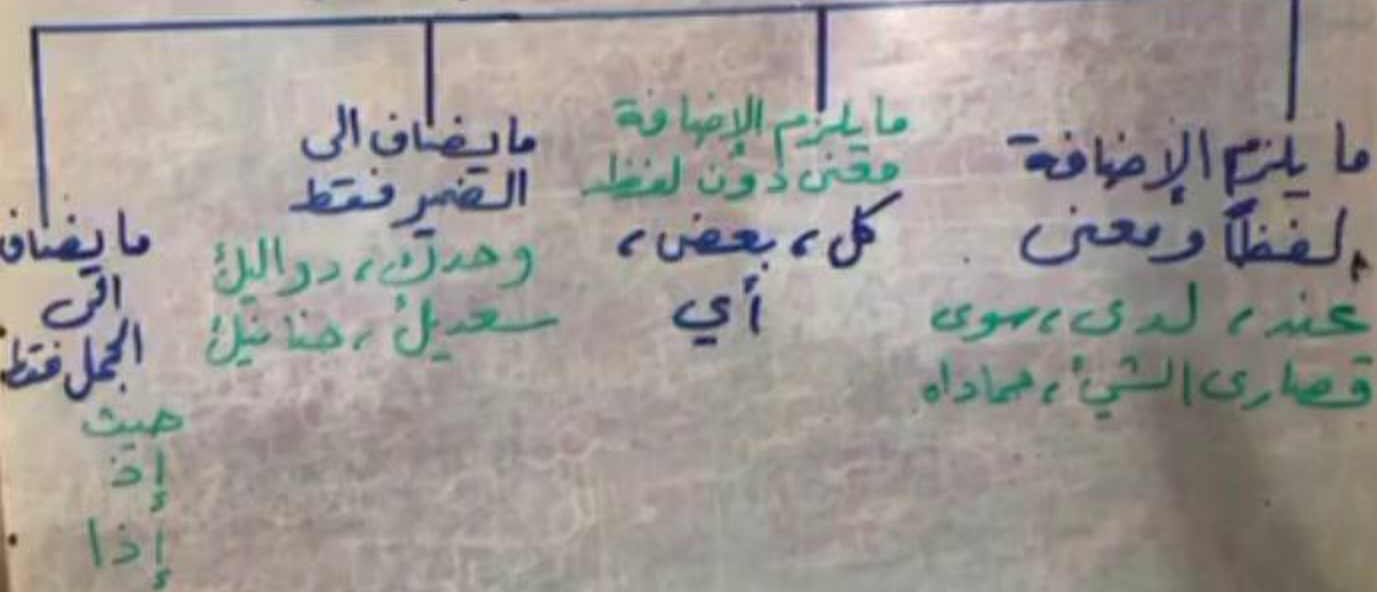 ما يلزم الإضافة
لفظاً ومعنى
عند، لدى، سوى
قصارى الشيء، حماداه
ما يلزم الإضافة
معنى دون لفظ
كل، بعض،
أي
ما يضاف الى
الضمير فقط
وحدك، دواليك
سعديك، حنانيك
ما يضاف
الى
الجمل فقط
حيث
إذ
إذا